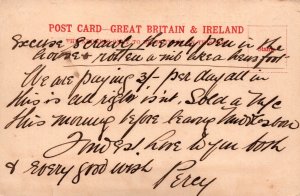 POST CARD—GREAT BRITAIN & IRELAND
Excuse scrawl, the only pen in the
house & rotten a nib like a hens foot
We are paying 3/- per day all in
this is all right isn't. Sold a
this morning before leaving
Fondest love to you both
& every good wish
Percy